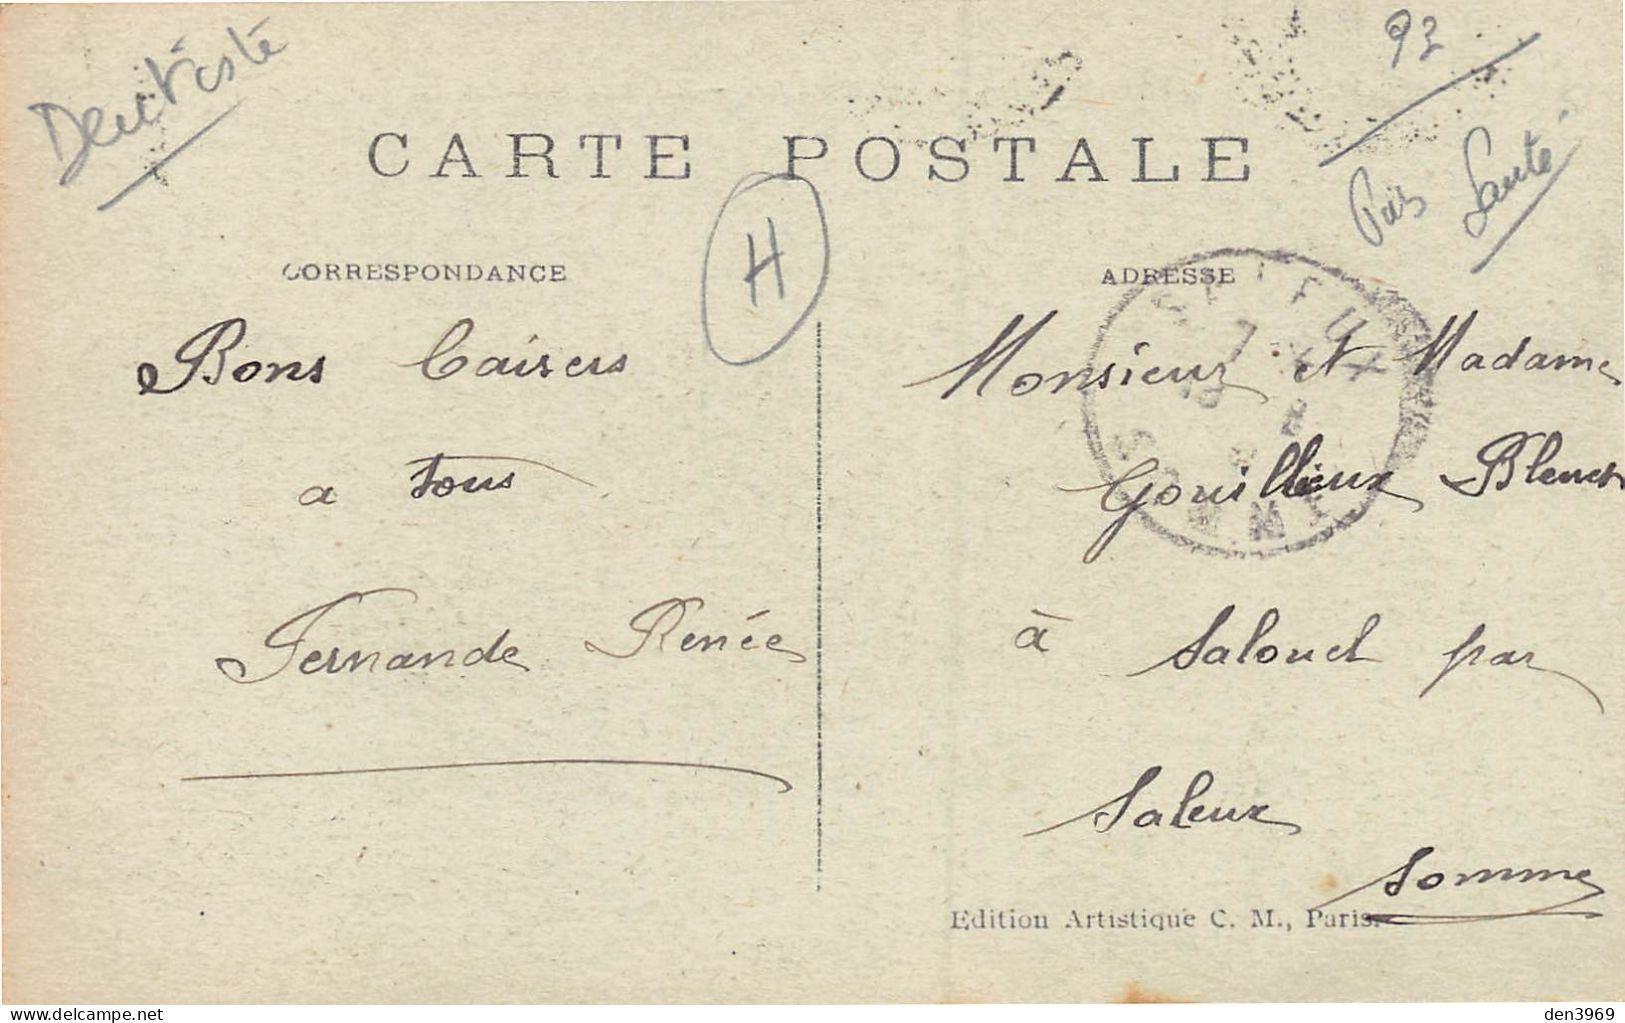 Dentiste
93
CARTE POSTALE
Pris Santé
H
CORRESPONDANCE
ADRESSE
Bons baisers
a tous
Fernande Renée
Monsieur et Madame
Gouillieux
à Salouel par
Saleux
Somme
Edition Artistique C. M., Paris.
SOMME
delcampe.net
den3969